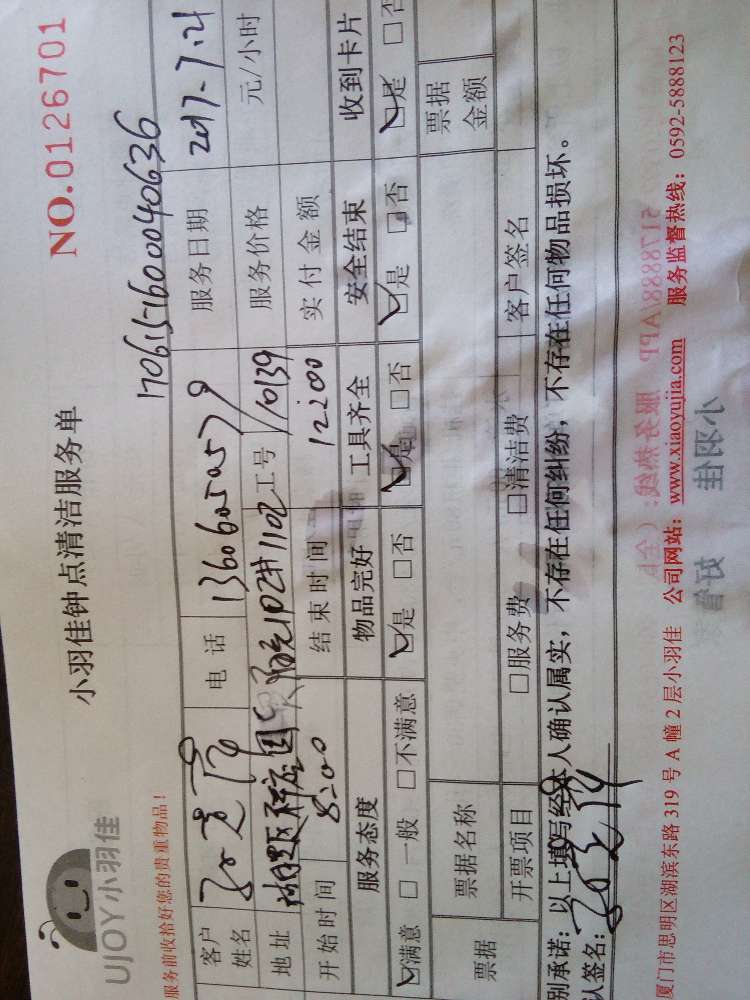 UJOY小羽佳
小羽佳钟点清洁服务单
NO.0126701
服务前收拾好您的贵重物品!
170615160040636
客户姓名 电话 13606050579 服务日期 2017-7.21
地址 工号 10139 服务价格 元/小时
开始时间 8:00 结束时间 12:00 实付金额
服务态度 物品完好 工具齐全 安全结束 收到卡片
☑满意 □一般 □不满意 ☑是 □否 ☑是 □否 ☑是 □否 ☑是 □否
票据 票据名称 票据金额
开票项目 □服务费 □清洁费 客户签名
别承诺:以上填写经本人确认属实,不存在任何纠纷,不存在任何物品损坏。
认签名:
厦门市思明区湖滨东路 319 号 A 幢 2 层小羽佳 公司网站:www.xiaoyujia.com 服务监督热线:0592-5888123